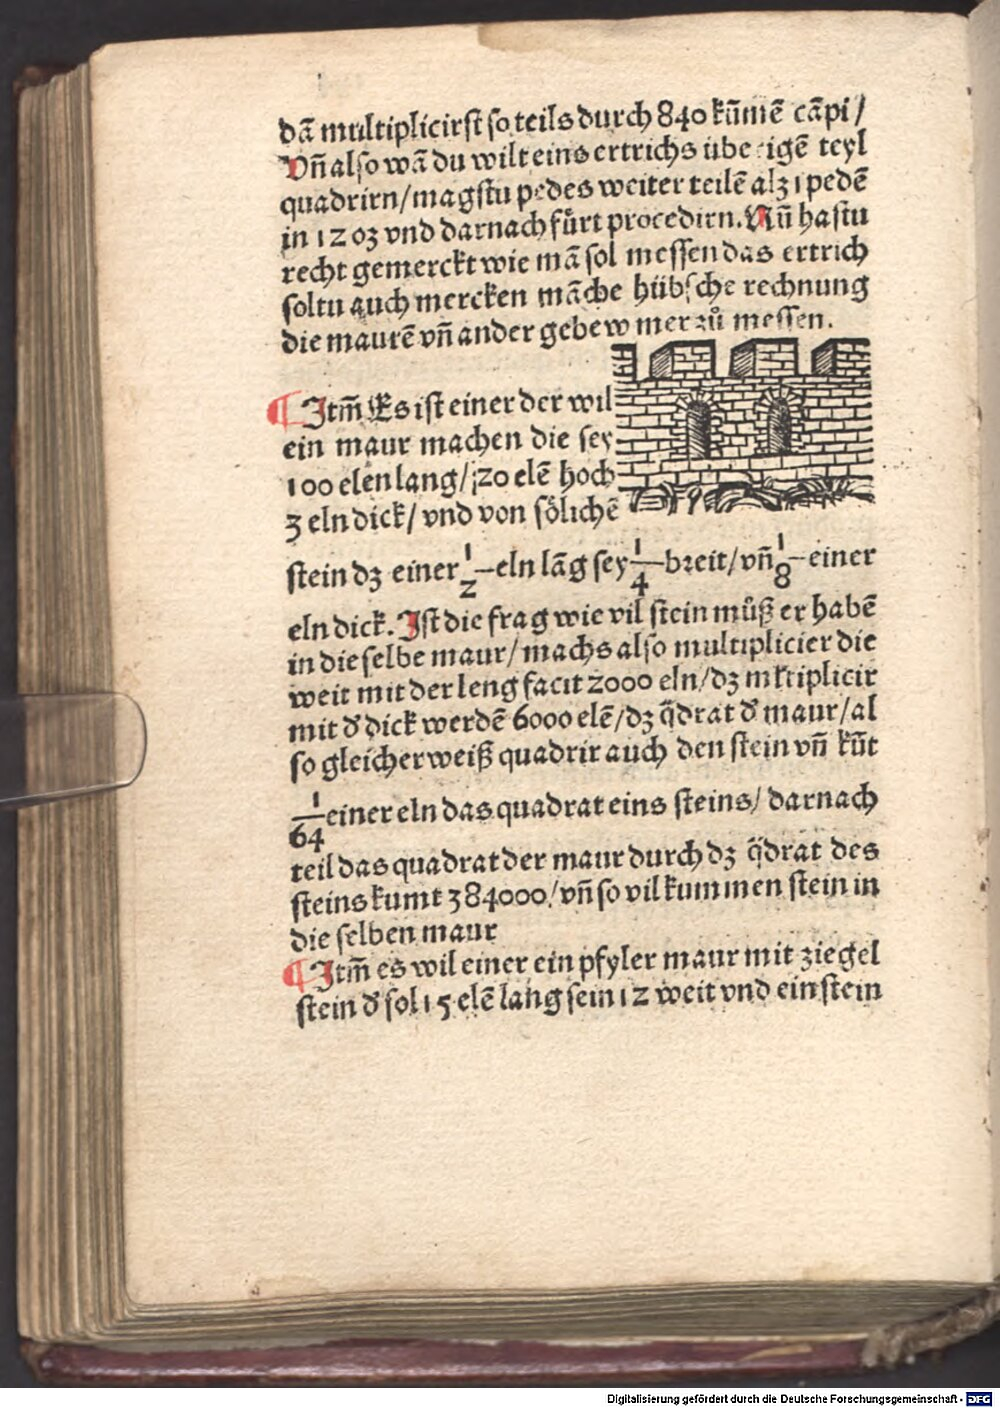 dā multiplicirst so teils durch 840 kūmē cāpi/
Vn̄ also wā du wilt eins ertrichs übe rigē teyl
quadrirn/magstu pedes weiter teilē alʒ 1 pedē
in 12 oʒ vnd darnach fůrt procedirn. Nū hastu
recht gemerckt wie mā sol messen das ertrich
soltu auch mercken māche hübsche rechnung
die maurē vn̄ ander gebew mer zů messen.
¶ Itm̄ Es ist einer der wil
ein maur machen die sey
100 elen lang/ 20 elē hoch
3 eln dick/ vnd von sölichē
stein dʒ einer 1/2 eln lāg sey 1/4 breit/vn̄ 1/8 einer
eln dick. Ist die frag wie vil stein můß er habē
in die selbe maur/machs also multiplicier die
weit mit der leng facit 2000 eln/dʒ multiplicir
mit d̄ dick werdē 6000 elē/dʒ q̄drat d̄ maur/al
so gleicher weiß quadrir auch den stein vn̄ kūt
1/64 einer eln das quadrat eins steins/ darnach
teil das quadrat der maur durch dʒ q̄drat des
steins kumt 384000/vn̄ so vil kummen stein in
die selben maur
¶ Itm̄ es wil einer ein pfyler maur mit ziegel
stein d̄ sol 15 elē lang sein 12 weit vnd ein stein
Digitalisierung gefördert durch die Deutsche Forschungsgemeinschaft - DFG